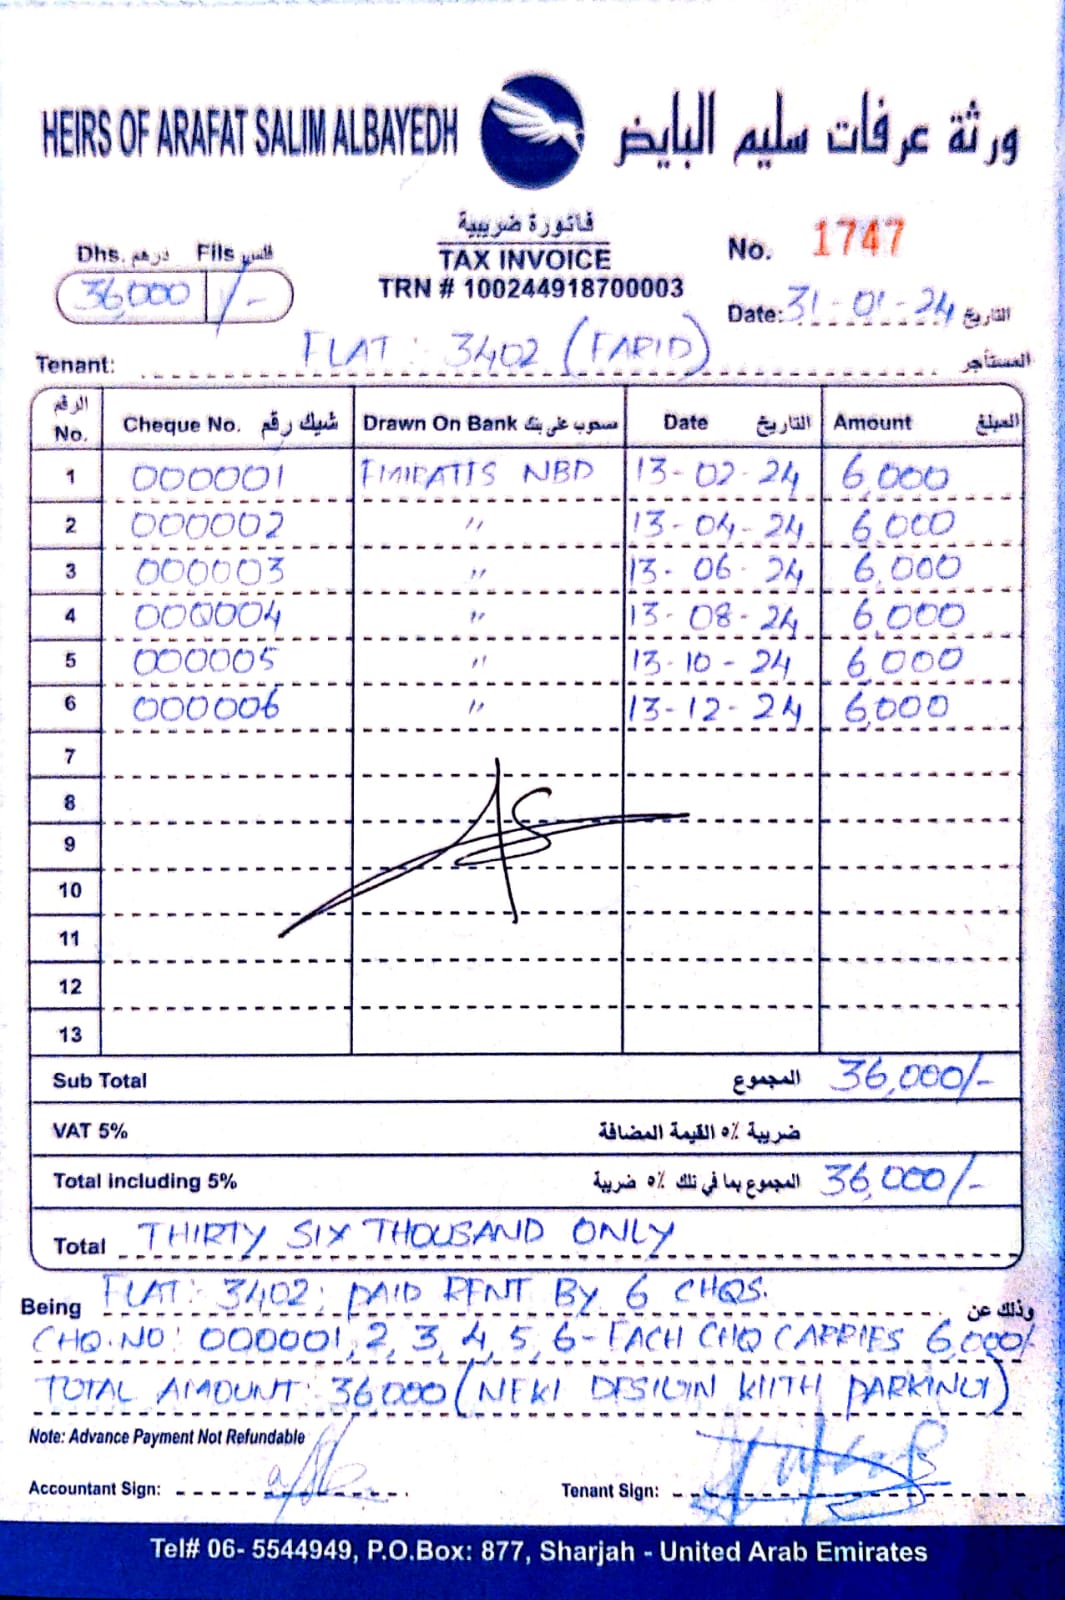 HEIRS OF ARAFAT SALIM ALBAYEDH ورثة عرفات سليم البايض
فاتورة ضريبية
TAX INVOICE
TRN # 100244918700003
No. 1747
Dhs. درهم Fils فلس
36,000 /-
Date: 31-01-24 التاريخ
Tenant: FLAT: 3402 (FARID) المستأجر
الرقم No. Cheque No. شيك رقم Drawn On Bank مسحوب على بنك Date التاريخ Amount المبلغ
1 000001 EMIRATES NBD 13-02-24 6,000
2 000002 " 13-04-24 6,000
3 000003 " 13-06-24 6,000
4 000004 " 13-08-24 6,000
5 000005 " 13-10-24 6,000
6 000006 " 13-12-24 6,000
7
8
9
10
11
12
13
Sub Total المجموع 36,000/-
VAT 5% ضريبة ٥٪ القيمة المضافة
Total including 5% المجموع بما في ذلك ٥٪ ضريبة 36,000/-
Total THIRTY SIX THOUSAND ONLY
Being FLAT: 3402; PAID RENT BY 6 CHQS. وذلك عن
CHQ.NO: 000001, 2, 3, 4, 5, 6 - EACH CHQ CARRIES 6,000/-
TOTAL AMOUNT: 36000 (NEW DESIGN WITH PARKING)
Note: Advance Payment Not Refundable
Accountant Sign: Tenant Sign:
Tel# 06- 5544949, P.O.Box: 877, Sharjah - United Arab Emirates